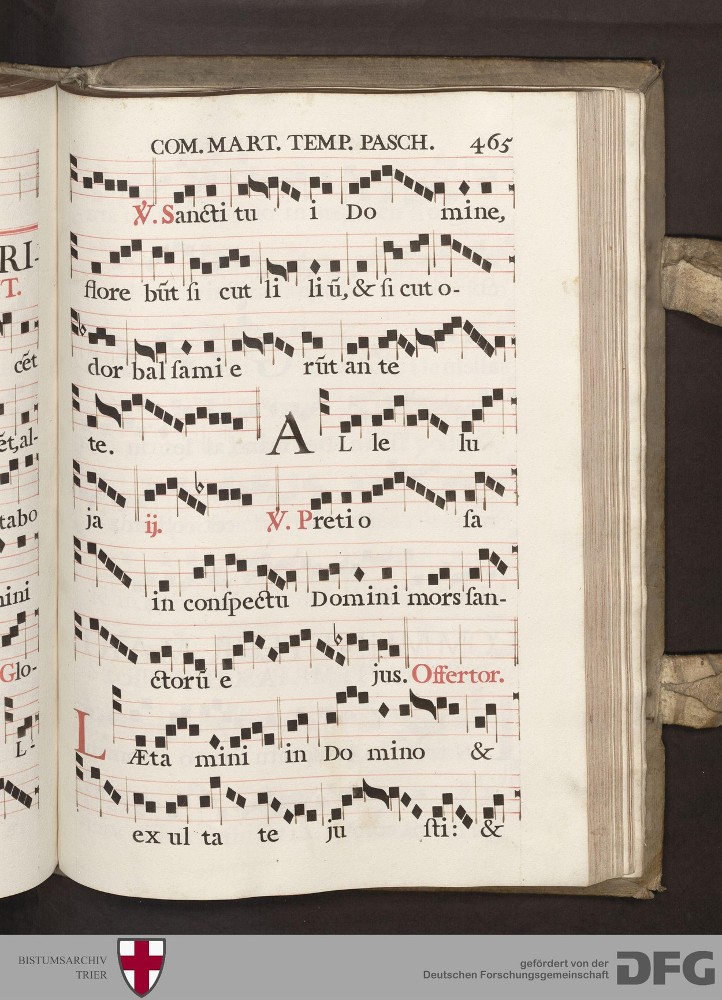 COM. MART. TEMP. PASCH. 465
℣. Sancti tu i Do mine,
flore būt ſi cut li li ũ, & ſi cut o-
dor bal ſami e rūt an te
te. AL le lu
ja ij. ℣. Preti o ſa
in conſpectu Domini mors ſan-
ctorū e jus. Offertor.
LÆta mini in Do mino &
ex ul ta te ju ſti: &
RI-
T.
cēt
ēt,al-
tabo
nini
Glo-
L-
BISTUMSARCHIV
TRIER
gefördert von der
Deutschen Forschungsgemeinschaft
DFG